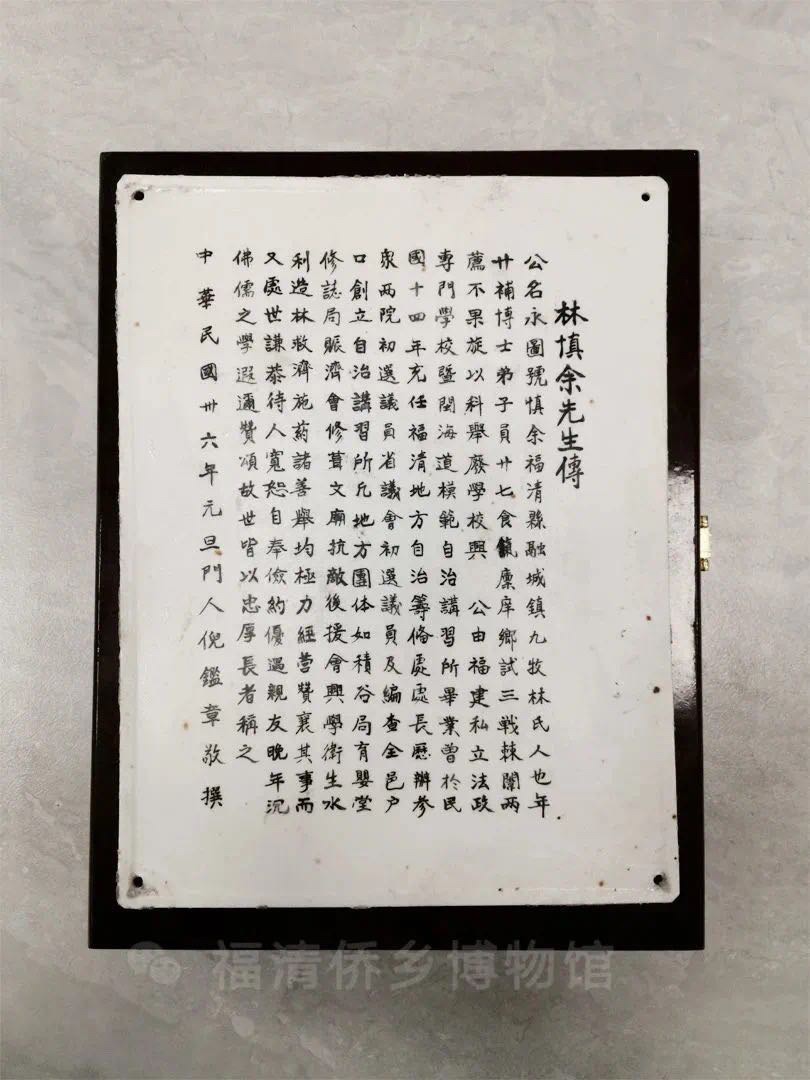 林慎余先生傳
公名永圖號慎余福清縣融城鎮九牧林氏人也年
廿補博士弟子員廿七食餼廩庠鄉試三戰棘闈兩
薦不果旋以科舉廢學校興 公由福建私立法政
專門學校暨閩海道模範自治講習所畢業曾於民
國十四年充任福清地方自治籌俻處處長歷辦参
眾两院初選議員省議會初選議員及編查全邑户
口創立自治講習所凢地方團体如積谷局育嬰堂
修誌局賑濟會修葺文廟抗敵後援會興學衛生水
利造林救濟施药諸善舉均極力經营贊襄其事而
又處世謙恭待人寬恕自奉儉約優遇親友晚年沉
佛儒之學遐邇贊頌故世皆以忠厚長者稱之
中華民國卅六年元旦門人倪鑑章敬撰
福清侨乡博物馆